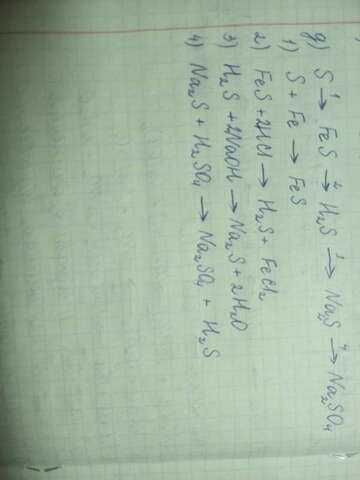 g) S 1→ FeS 2→ H₂S 3→ Na₂S 4→ Na₂SO₄
1) S + Fe → FeS
2) FeS + 2HCl → H₂S + FeCl₂
3) H₂S + 2NaOH → Na₂S + 2H₂O
4) Na₂S + H₂SO₄ → Na₂SO₄ + H₂S